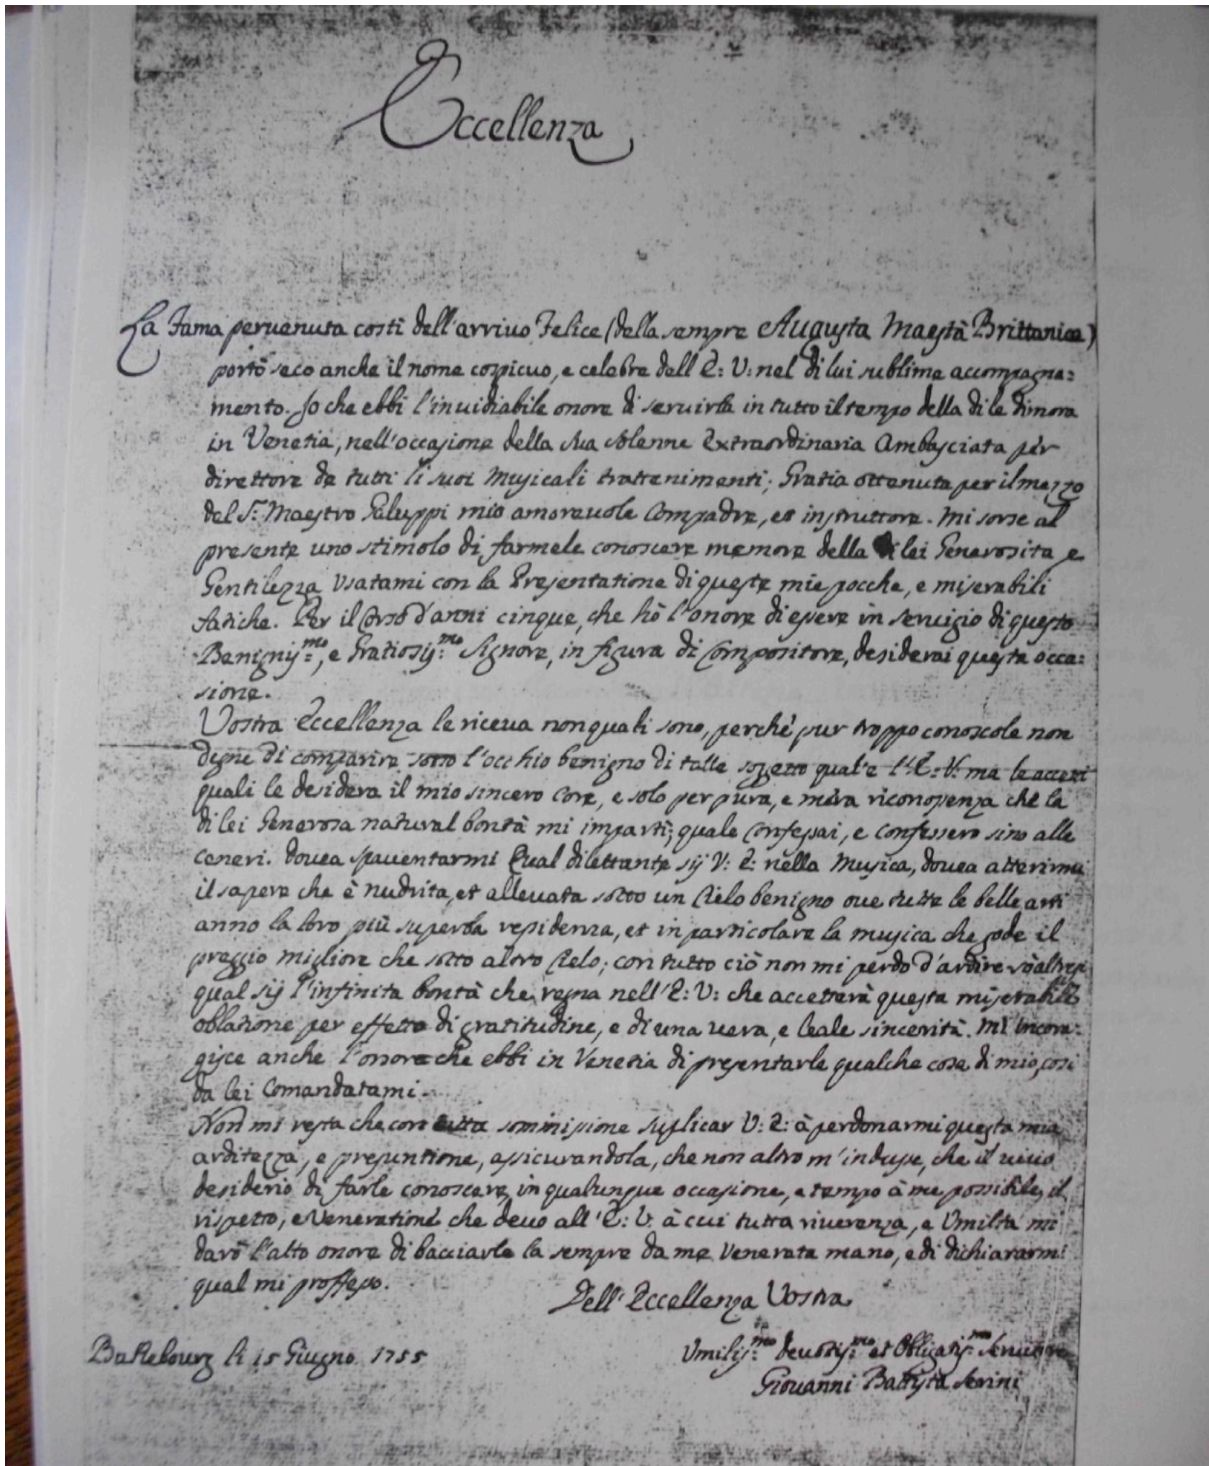 Eccellenza
La Fama peruenuta costì dell'arriuo Felice (della sempre Augusta Maestà Brittanica)
portò seco anche il nome cospicuo, e celebre dell E: V: nel di lui sublime accompagna:
mento. Io che ebbi l'inuidiabile onore di seruirla in tutto il tempo della di le dimora
in Venetia, nell'occasione della Sua solenne Extraordinaria Ambasciata per
direttore de tutti li suoi Musicali trattenimenti; Gratia ottenuta per il mezzo
del Sr: Maestro Galuppi mio amoreuole Compadre, et instruttore. Mi sorse al
presente uno stimolo di farmele conoscere memore della lei Generosita e
Gentilezza Vsatami con la Presentatione di queste mie pocche, e miserabili
fatiche. Per il Corso d'anni cinque, che hò l'onore di essere in seruigio di questo
Benigniss:mo, e Gratiosiss:mo Signore, in figura di Compositore, desiderai questa occa:
sione.
Vostra Eccellenza le riceua non quali sono, perché pur troppo conoscole non
degne di comparire sotto l'occhio benigno di talle sogetto qual'e l'E: V: ma le accetti
quali le desidera il mio sincero Core, e solo per pura, e mera riconossenza che la
di lei Generosa natural bontà mi impartì; quale Confessai, e confessero sino alle
ceneri. Douea spauentarmi Qual dilettante sij V: E: nella Musica, douea atterirmi
il sapere che è nudrita, et alleuata sotto un Cielo benigno oue tutte le belle arti
anno la loro più superba residenza, et in particolare la musica che gode il
preggio migliore che sotto altro Cielo; con tutto ciò non mi perdo d'ardire sò altresi
qual sij l'infinita bontà che regna nell'E: V: che accetterà questa miserabile
oblatione per effetto di gratitudine, e di una uera, e leale sincerità. Mi incora:
gisce anche l'onore che ebbi in Venetia di presentarle qualche cosa di mio, così
da lei Comandatami.
Non mi resta che con tutta sommissione suplicar V: E: à perdonarmi questa mia
arditezza, e presuntione, assicurandola, che non altro m'indusse, che il uiuo
desiderio di farle conoscere in qualunque occasione, e tempo à me possibile, il
rispetto, e Veneratione che deuo all'E: V: à cui tutta riuerenza, e Vmiltà mi
darò l'alto onore di bacciarle la sempre da me Venerata mano, e di dichiararmi
qual mi proffesso.
Dell'Eccellenza Vostra
Vmilis:mo deuotis:mo et Obligatis:mo Seruitore
Giouanni Battista Serini
li 15 Giugno 1755